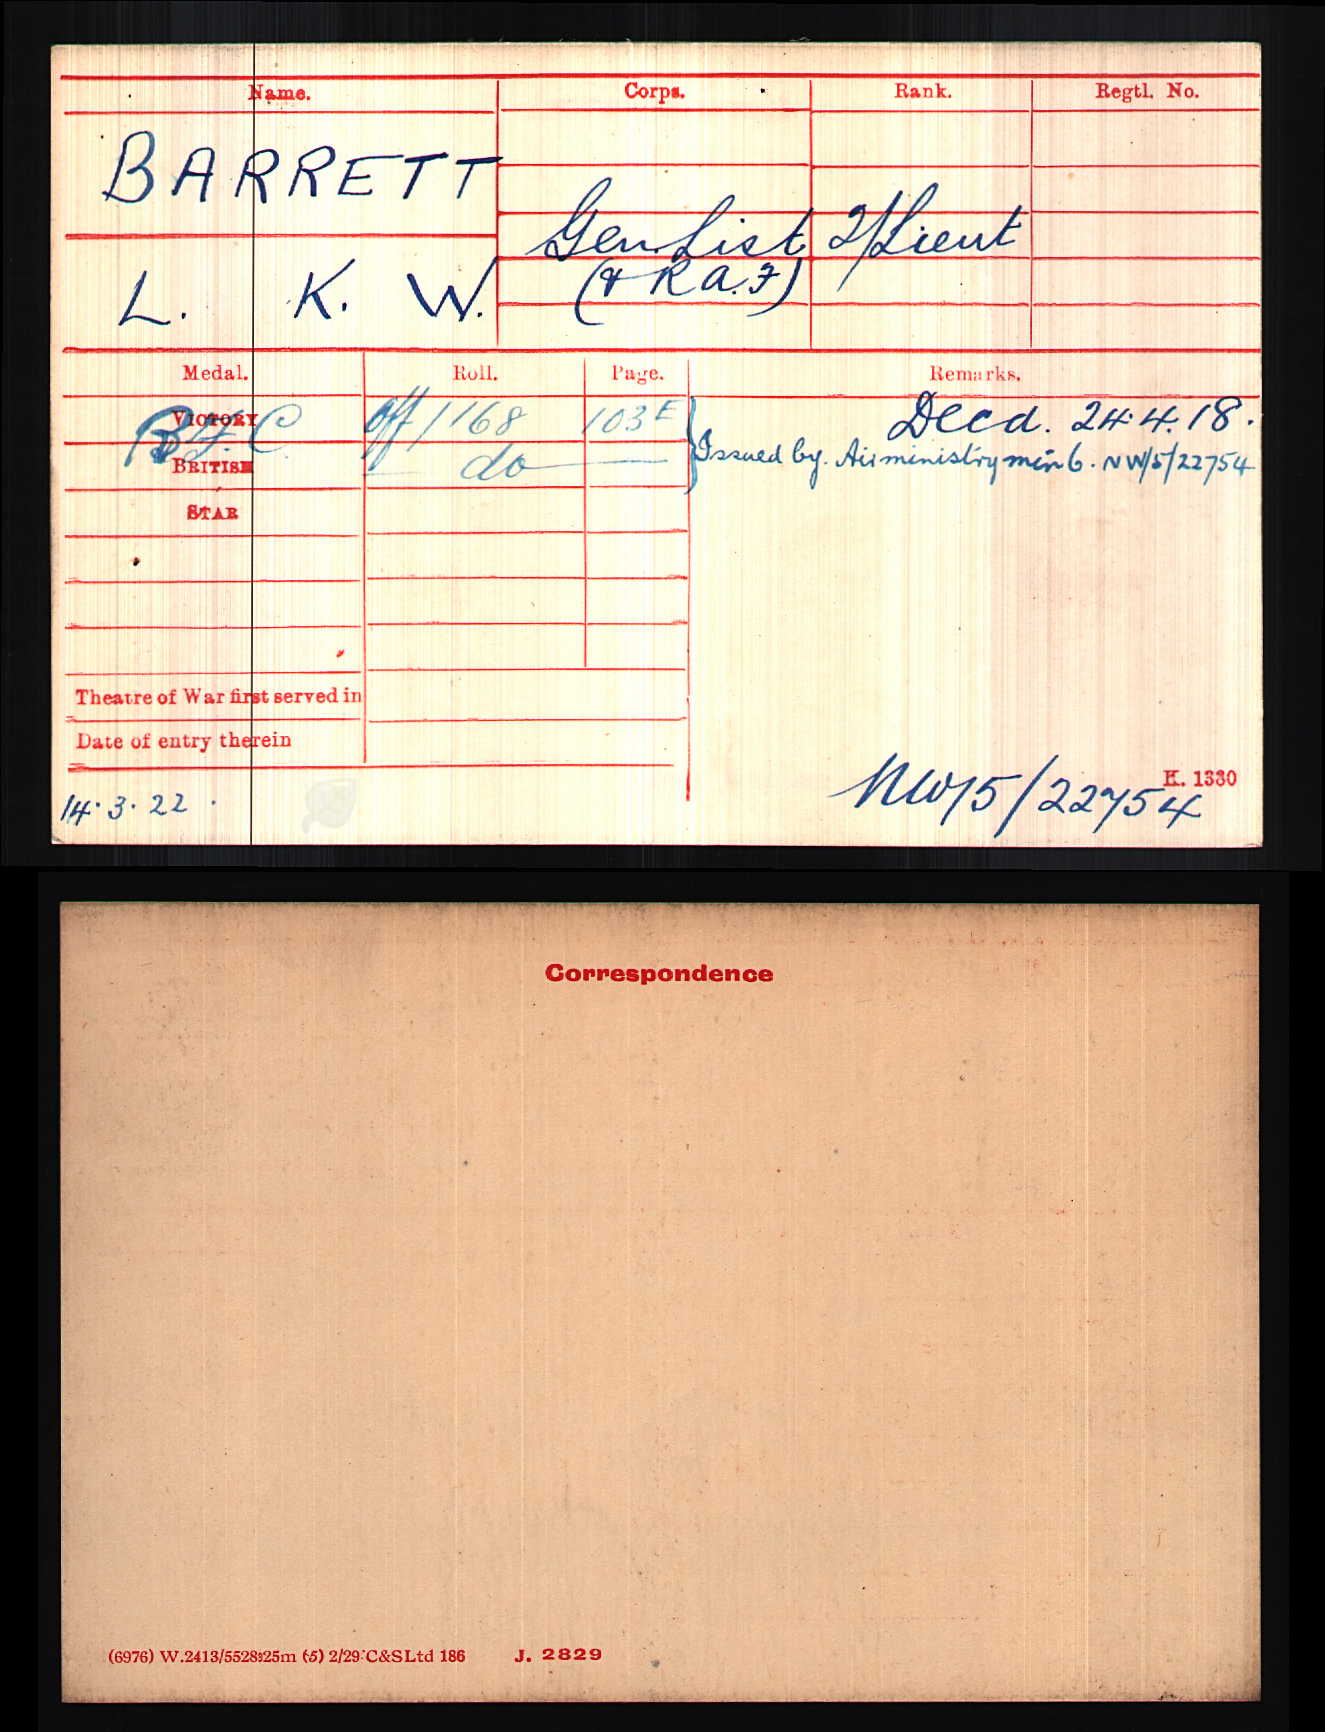 Name. Corps. Rank. Regtl. No.
BARRETT
L. K. W.
Gen List 2/Lieut
(& R.A.F)
Medal. Roll. Page. Remarks.
VICTORY Off/168 103E Decd. 24.4.18.
BRITISH do Issued by. Air ministry min 6. NW/5/22754
STAR
Theatre of War first served in
Date of entry therein
K. 1380
14.3.22. NW/5/22754
Correspondence
(6976) W.2413/5528 25m (5) 2/29 C&S Ltd 186 J. 2829